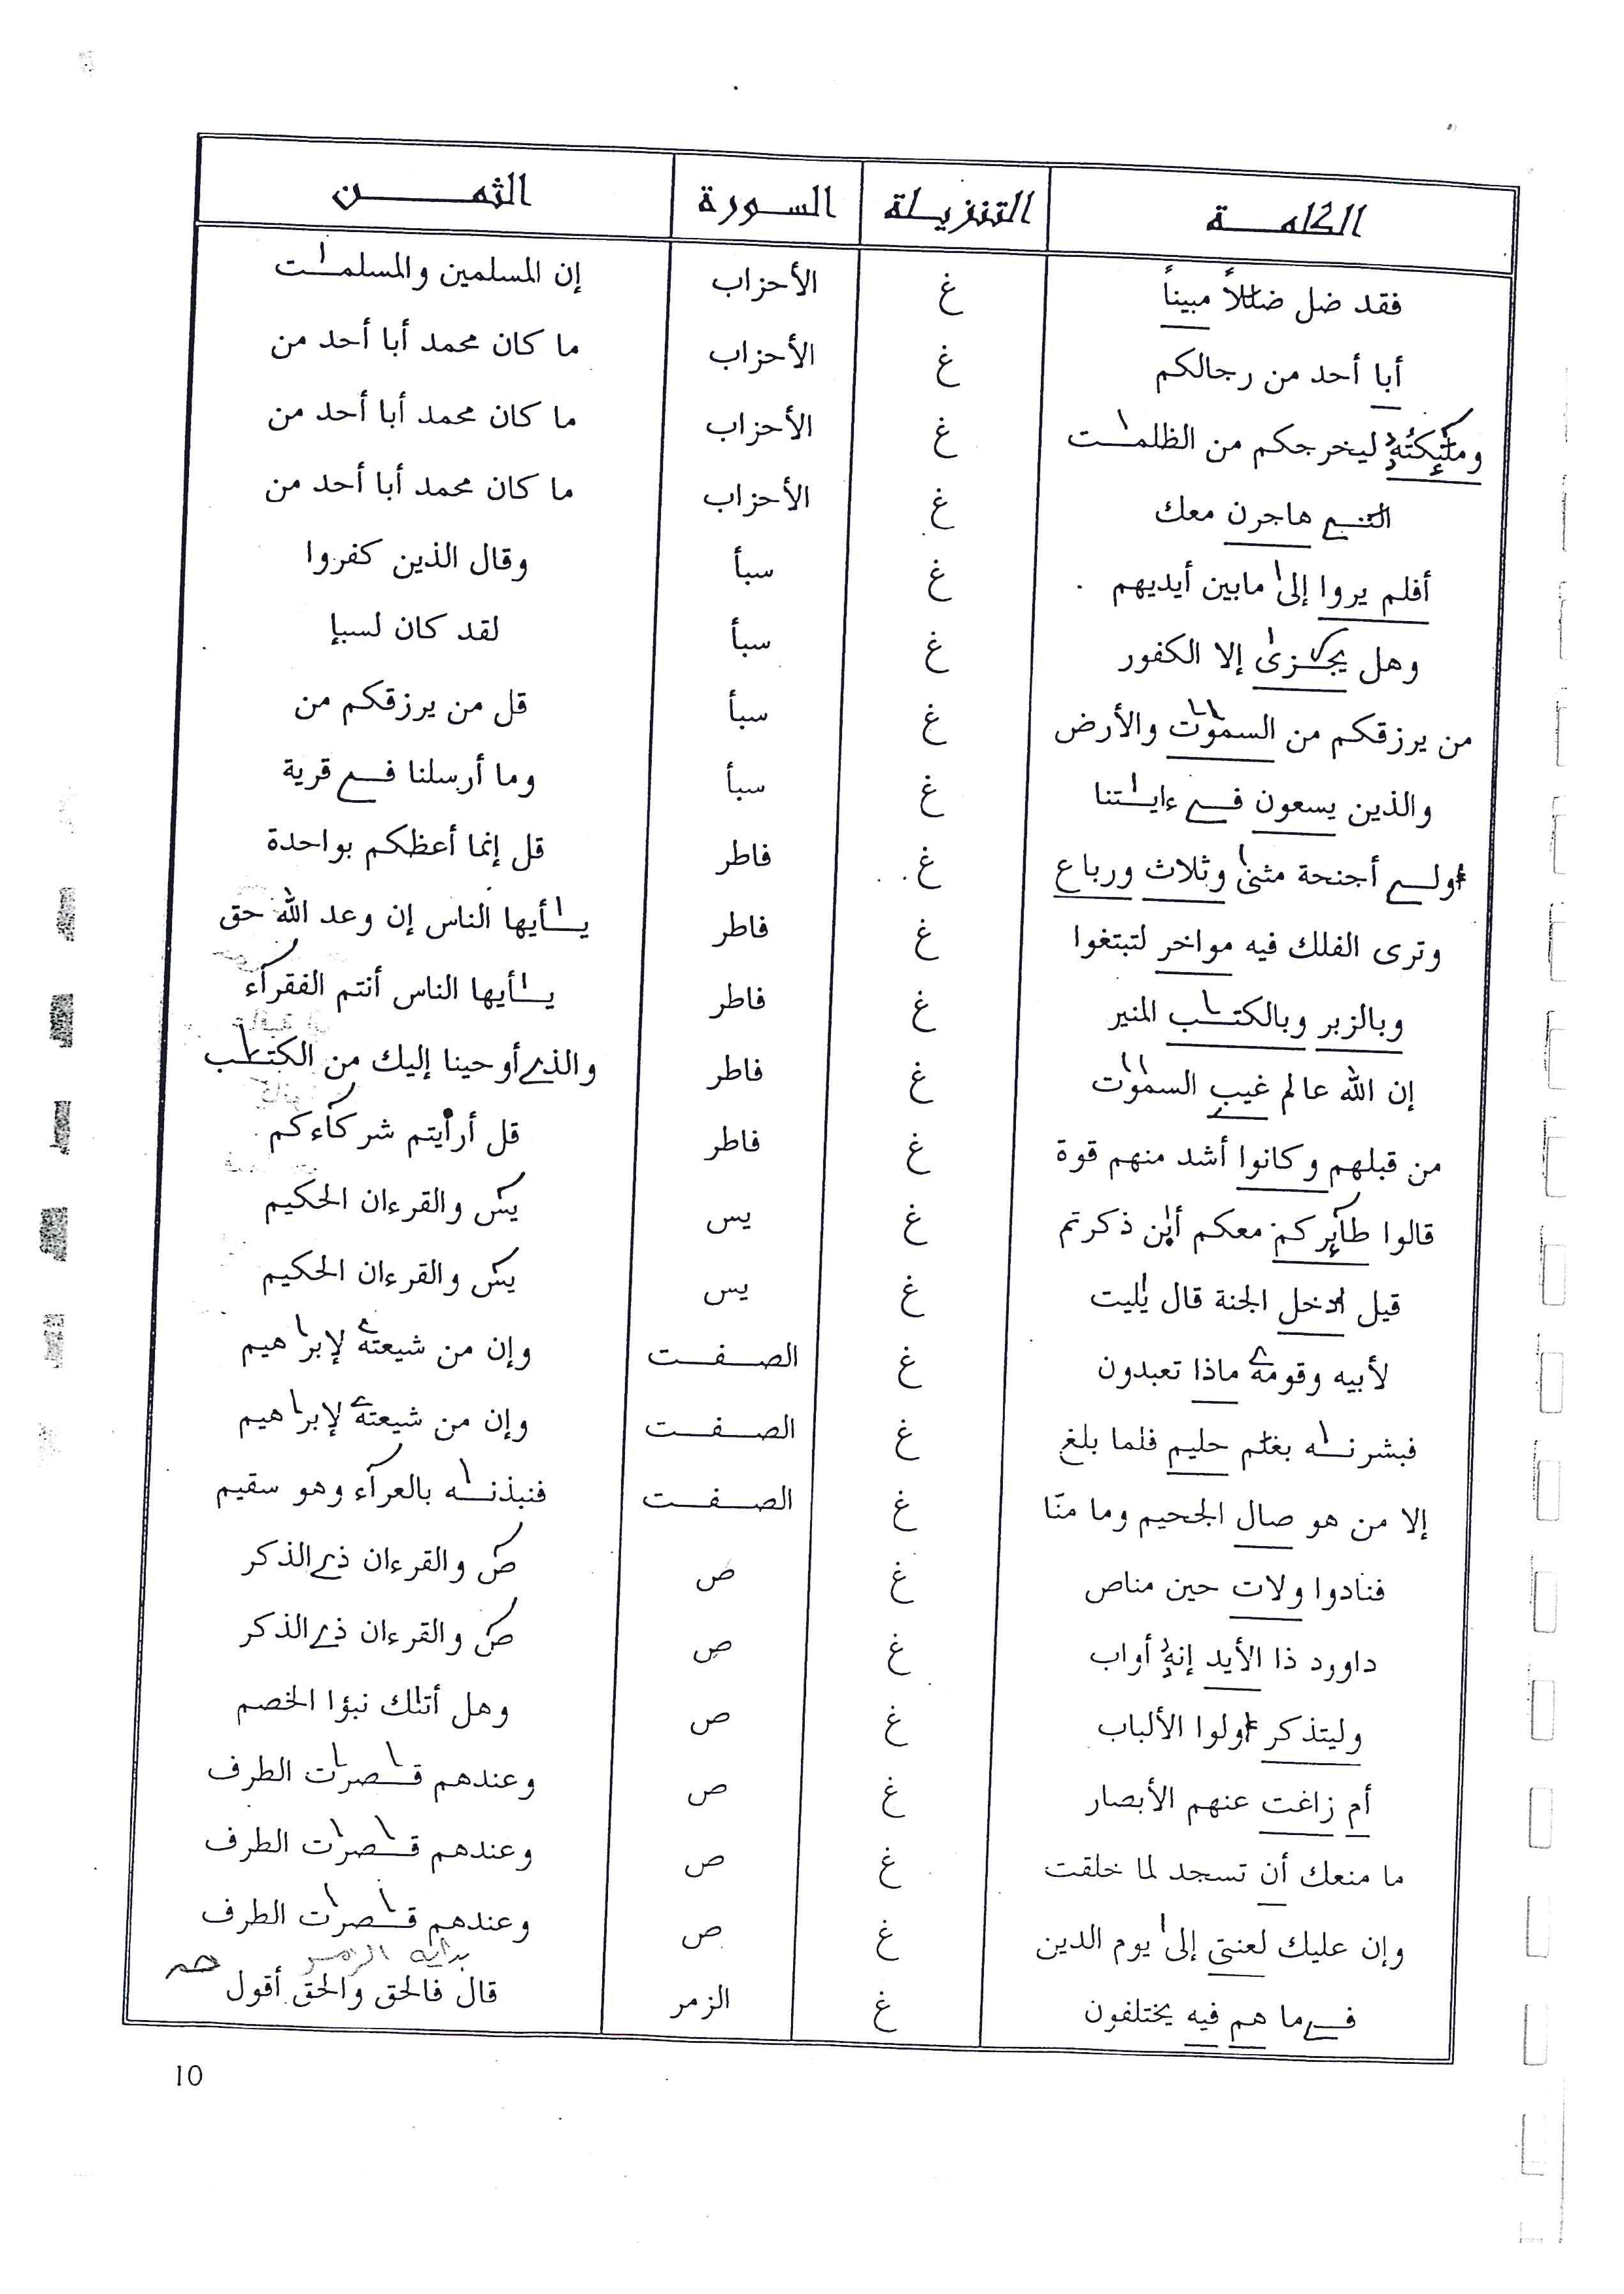 الكلمة التنزيلة السورة الثمن
فقد ضل ضلٰلاً مبيناً غ الأحزاب إن المسلمين والمسلمٰت
أبا أحد من رجالكم غ الأحزاب ما كان محمد أبا أحد من
وملٰٓئكتُهُ ليخرجكم من الظلمٰت غ الأحزاب ما كان محمد أبا أحد من
التے هاجرن معك غ الأحزاب ما كان محمد أبا أحد من
أفلم يروا إلىٰ مابين أيديهم غ سبأ وقال الذين كفروا
وهل يجٰزىٰ إلا الكفور غ سبأ لقد كان لسبإ
من يرزقكم من السمٰوٰت والأرض غ سبأ قل من يرزقكم من
والذين يسعون فے ءايٰتنا غ سبأ وما أرسلنا فے قرية
اولے أجنحة مثنىٰ وثلاث ورباع غ فاطر قل إنما أعظكم بواحدة
وترى الفلك فيه مواخر لتبتغوا غ فاطر يٰأيها الناس إن وعد الله حق
وبالزبر وبالكتٰب المنير غ فاطر يٰأيها الناس أنتم الفقرآء
إن الله عالم غيب السمٰوٰت غ فاطر والذے أوحينا إليك من الكتٰب
من قبلهم وكانوا أشد منهم قوة غ فاطر قل أرأيتم شركآءكم
قالوا طٰٓئركم معكم أين ذكرتم غ يس يسٓ والقرءان الحكيم
قيل ادخل الجنة قال يٰليت غ يس يسٓ والقرءان الحكيم
لأبيه وقومهے ماذا تعبدون غ الصفت وإن من شيعتهے لإبرٰهيم
فبشرنٰه بغلٰم حليم فلما بلغ غ الصفت وإن من شيعتهے لإبرٰهيم
إلا من هو صال الجحيم وما منّا غ الصفت فنبذنٰه بالعرآء وهو سقيم
فنادوا ولات حين مناص غ ص صٓ والقرءان ذے الذكر
داوورد ذا الأيد إنهُ أواب غ ص صٓ والقرءان ذے الذكر
وليتذكر اولوا الألباب غ ص وهل أتٰك نبؤا الخصم
أم زاغت عنهم الأبصار غ ص وعندهم قٰصرٰت الطرف
ما منعك أن تسجد لما خلقت غ ص وعندهم قٰصرٰت الطرف
وإن عليك لعنتى إلىٰ يوم الدين غ ص وعندهم قٰصرٰت الطرف
بداية الزمر
فے ما هم فيه يختلفون غ الزمر قال فالحق والحق أقول
10